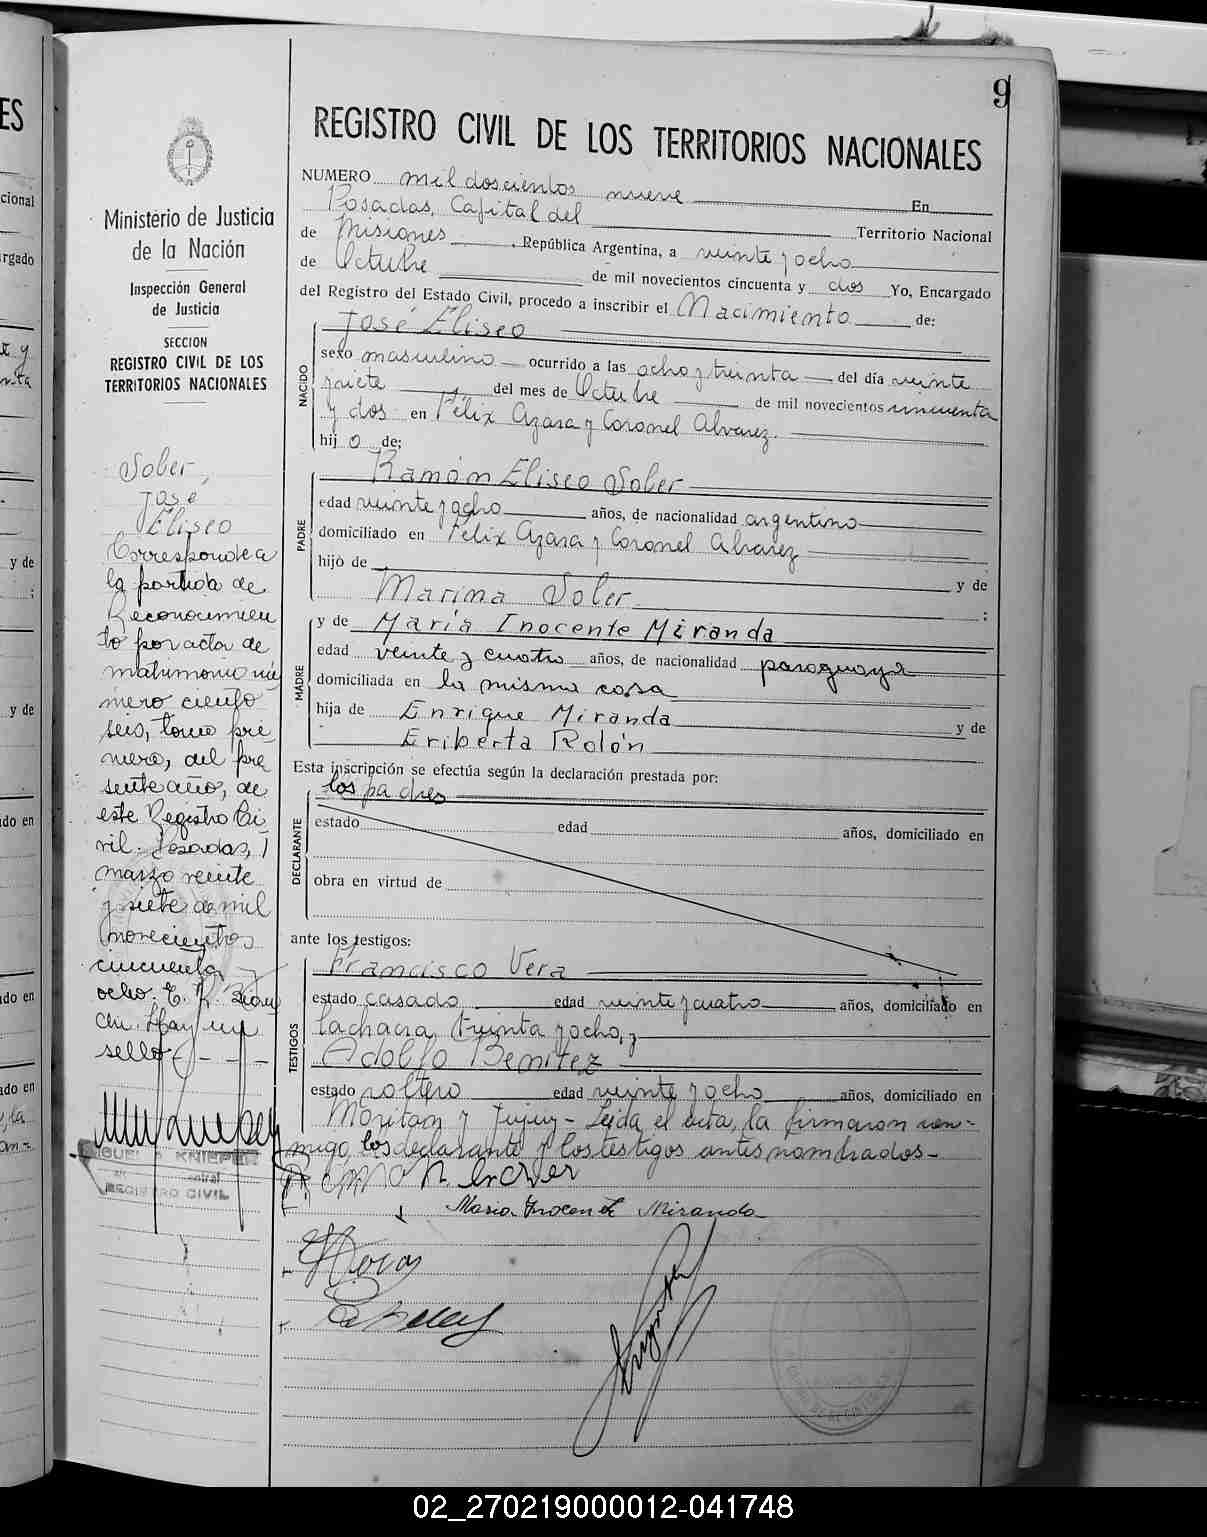 9
REGISTRO CIVIL DE LOS TERRITORIOS NACIONALES
Ministerio de Justicia
de la Nación
Inspección General
de Justicia
SECCION
REGISTRO CIVIL DE LOS
TERRITORIOS NACIONALES
Sober,
José
Eliseo
Corresponde a
la partida de
Reconocimien
to por acta de
matrimonio nú
mero ciento
seis, tomo pri
mero, del pre
sente año, de
este Registro Ci-
vil. Posadas,
marzo veinte
y siete de mil
novecientos
cincuenta y
ocho. E. R.
Hay un
sello
MIGUEL A. KNIEPER
REGISTRO CIVIL
NUMERO mil doscientos nueve En
Posadas, Capital del Territorio Nacional
de Misiones, República Argentina, a veinte y ocho
de Octubre de mil novecientos cincuenta y dos Yo, Encargado
del Registro del Estado Civil, procedo a inscribir el Nacimiento de:
NACIDO
José Eliseo
sexo masculino ocurrido a las ocho y treinta del día veinte
y siete del mes de Octubre de mil novecientos cincuenta
y dos en Félix Azara y Coronel Alvarez.
hij o de:
PADRE
Ramón Eliseo Sober
edad veinte y ocho años, de nacionalidad argentino
domiciliado en Félix Azara y Coronel Alvarez
hijo de y de
Marina Sober ;
MADRE
y de María Inocente Miranda
edad veinte y cuatro años, de nacionalidad paraguaya
domiciliada en la misma casa
hija de Enrique Miranda y de
Eriberta Rolón
Esta inscripción se efectúa según la declaración prestada por:
los padres
DECLARANTE
estado edad años, domiciliado en
obra en virtud de
ante los testigos:
TESTIGOS
Francisco Vera
estado casado edad veinte y cuatro años, domiciliado en
la chacra treinta y ocho, y
Adolfo Benitez
estado soltero edad veinte y ocho años, domiciliado en
y Jujuy - Leida el acta, la firmaron con-
migo, los declarante y los testigos antes nombrados -
Maria Inocente Miranda
02_270219000012-041748